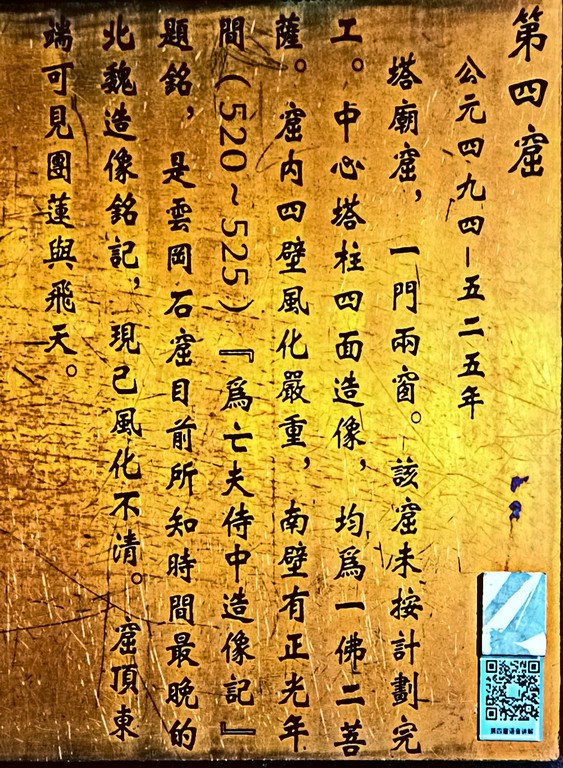 第四窟
公元四九四—五二五年
塔廟窟，一門兩窗。該窟未按計劃完
工。中心塔柱四面造像，均爲一佛二菩
薩。窟内四壁風化嚴重，南壁有正光年
間（520~525）『爲亡夫侍中造像記』
題銘，是雲岡石窟目前所知時間最晚的
北魏造像銘記，現已風化不清。窟頂東
端可見團蓮與飛天。